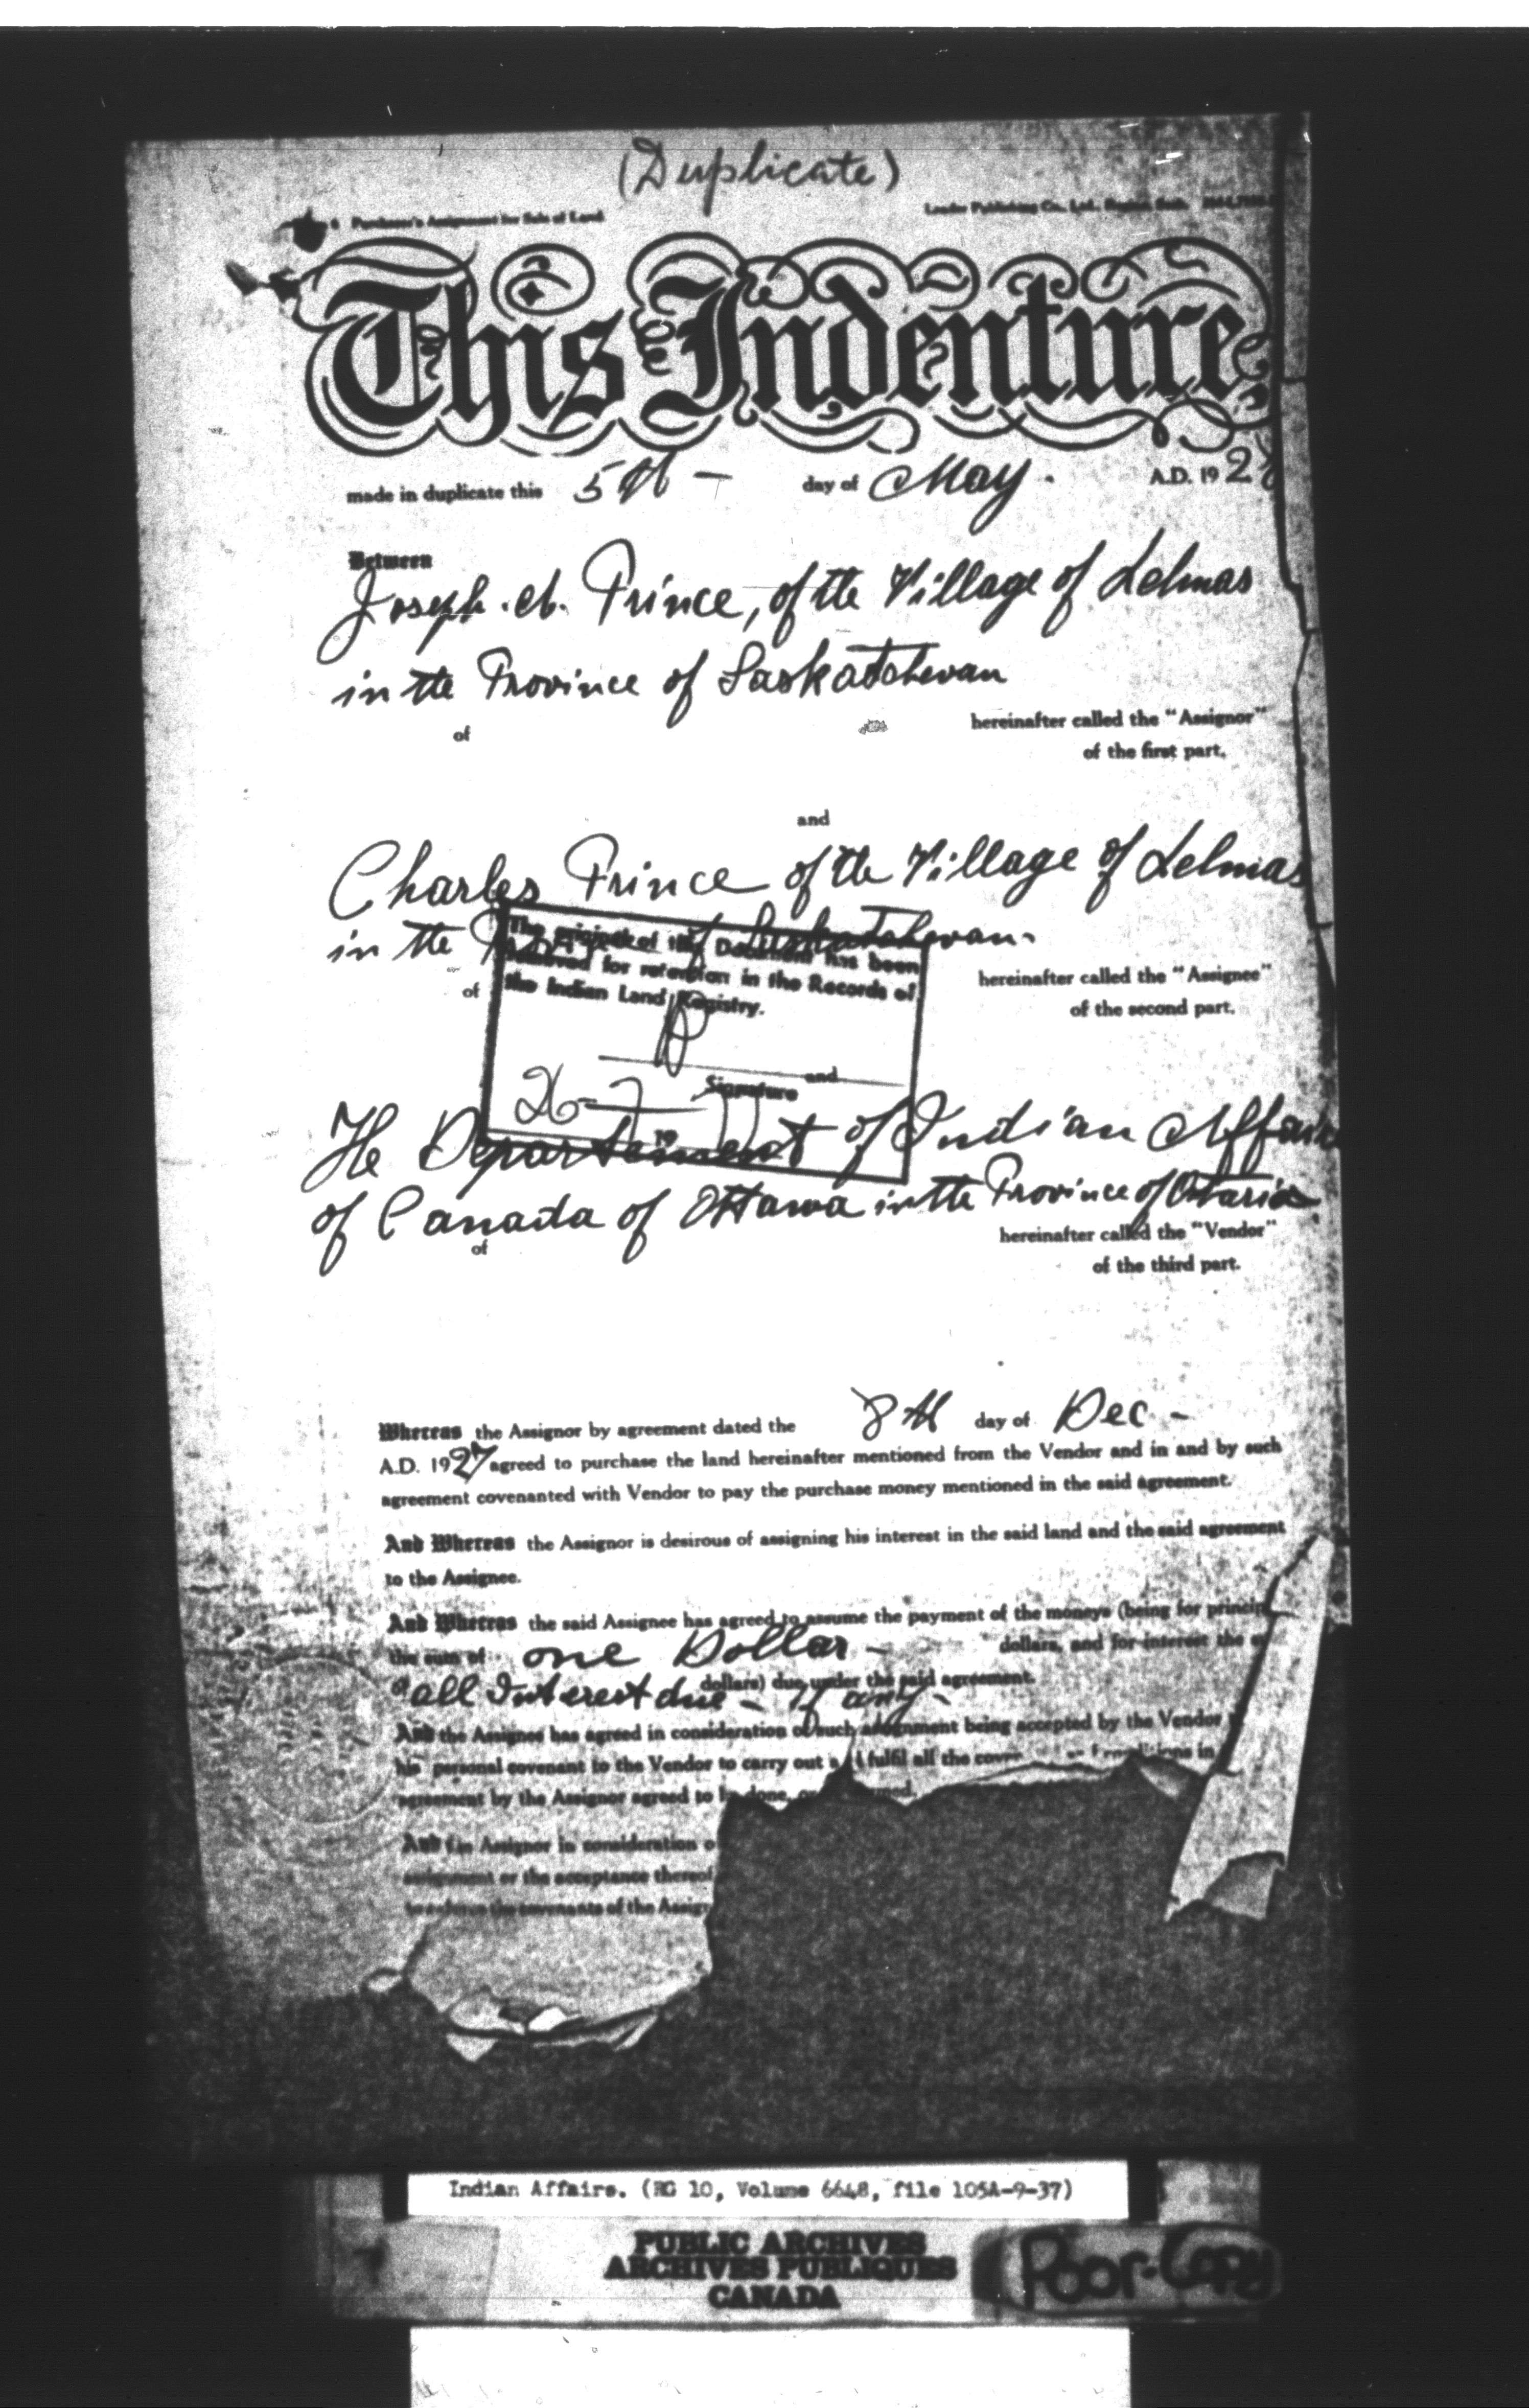 (Duplicate)
Purchaser's Assignment for Sale of Land
Leader Publishing Co., Ltd., Regina Sask.
This Indenture
made in duplicate this 5th — day of May. A.D. 192
Between
Joseph . A. Prince, of the Village of Delmas
in the Province of Saskatchewan
of hereinafter called the "Assignor"
of the first part.
and
Charles Prince of the Village of Delmas
in the Province of Saskatchewan.
of hereinafter called the "Assignee"
of the second part.
The original of this Document has been
removed for retention in the Records of
the Indian Land Registry.
and
Signature
26-7
19
The Departement of Indian Affairs
of Canada of Ottawa in the Province of Ontario
of hereinafter called the "Vendor"
of the third part.
Whereas the Assignor by agreement dated the 8th day of Dec -
A.D. 1927 agreed to purchase the land hereinafter mentioned from the Vendor and in and by such
agreement covenanted with Vendor to pay the purchase money mentioned in the said agreement.
And Whereas the Assignor is desirous of assigning his interest in the said land and the said agreement
to the Assignee.
And Whereas the said Assignee has agreed to assume the payment of the moneys (being for princip
the sum of one Dollar - dollars, and for interest the
of all Interest due - if any - dollars) due under the said agreement.
And the Assignee has agreed in consideration of such assignment being accepted by the Vendor
his personal covenant to the Vendor to carry out and fulfil all the cove in
agreement by the Assignor agreed to be done, or
And the Assignor in consideration o
assignment or the acceptance thereof
to enforce the covenants of the Assign
Indian Affairs. (RG 10, Volume 6648, file 105A-9-37)
PUBLIC ARCHIVES
ARCHIVES PUBLIQUES
CANADA
Poor-Copy